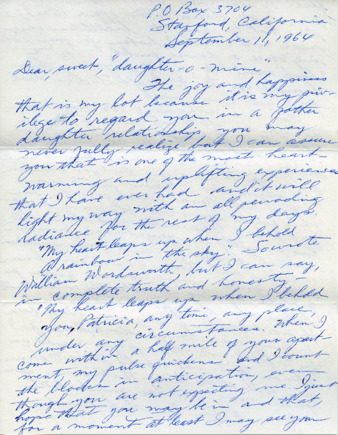 P O Box 3704
Stanford, California
September 11, 1964
Dear sweet, "daughter-o-mine"
The joy and happiness
that is my lot because it is my priv-
ilege to regard you in a father
daughter relationship, you may
never fully realize but I can assure
you that is one of the most heart-
warming and uplifting experiences
that I have ever had and it will
light my way with an all pervading
radiance for the rest of my days.
"My heart leaps up when I behold
A rainbow in the sky". So wrote
William Wordsworth, but I can say,
in complete truth and honesty,
"My heart leaps up when I behold
You, Patricia, any time, any place,
under any circumstances. When I
come within a half mile of your apart-
ment, my pulse quickens and I count
the blocks in anticipation, even
though you are not expecting me I just
hope that you may be in and that,
for a moment at least I may see you